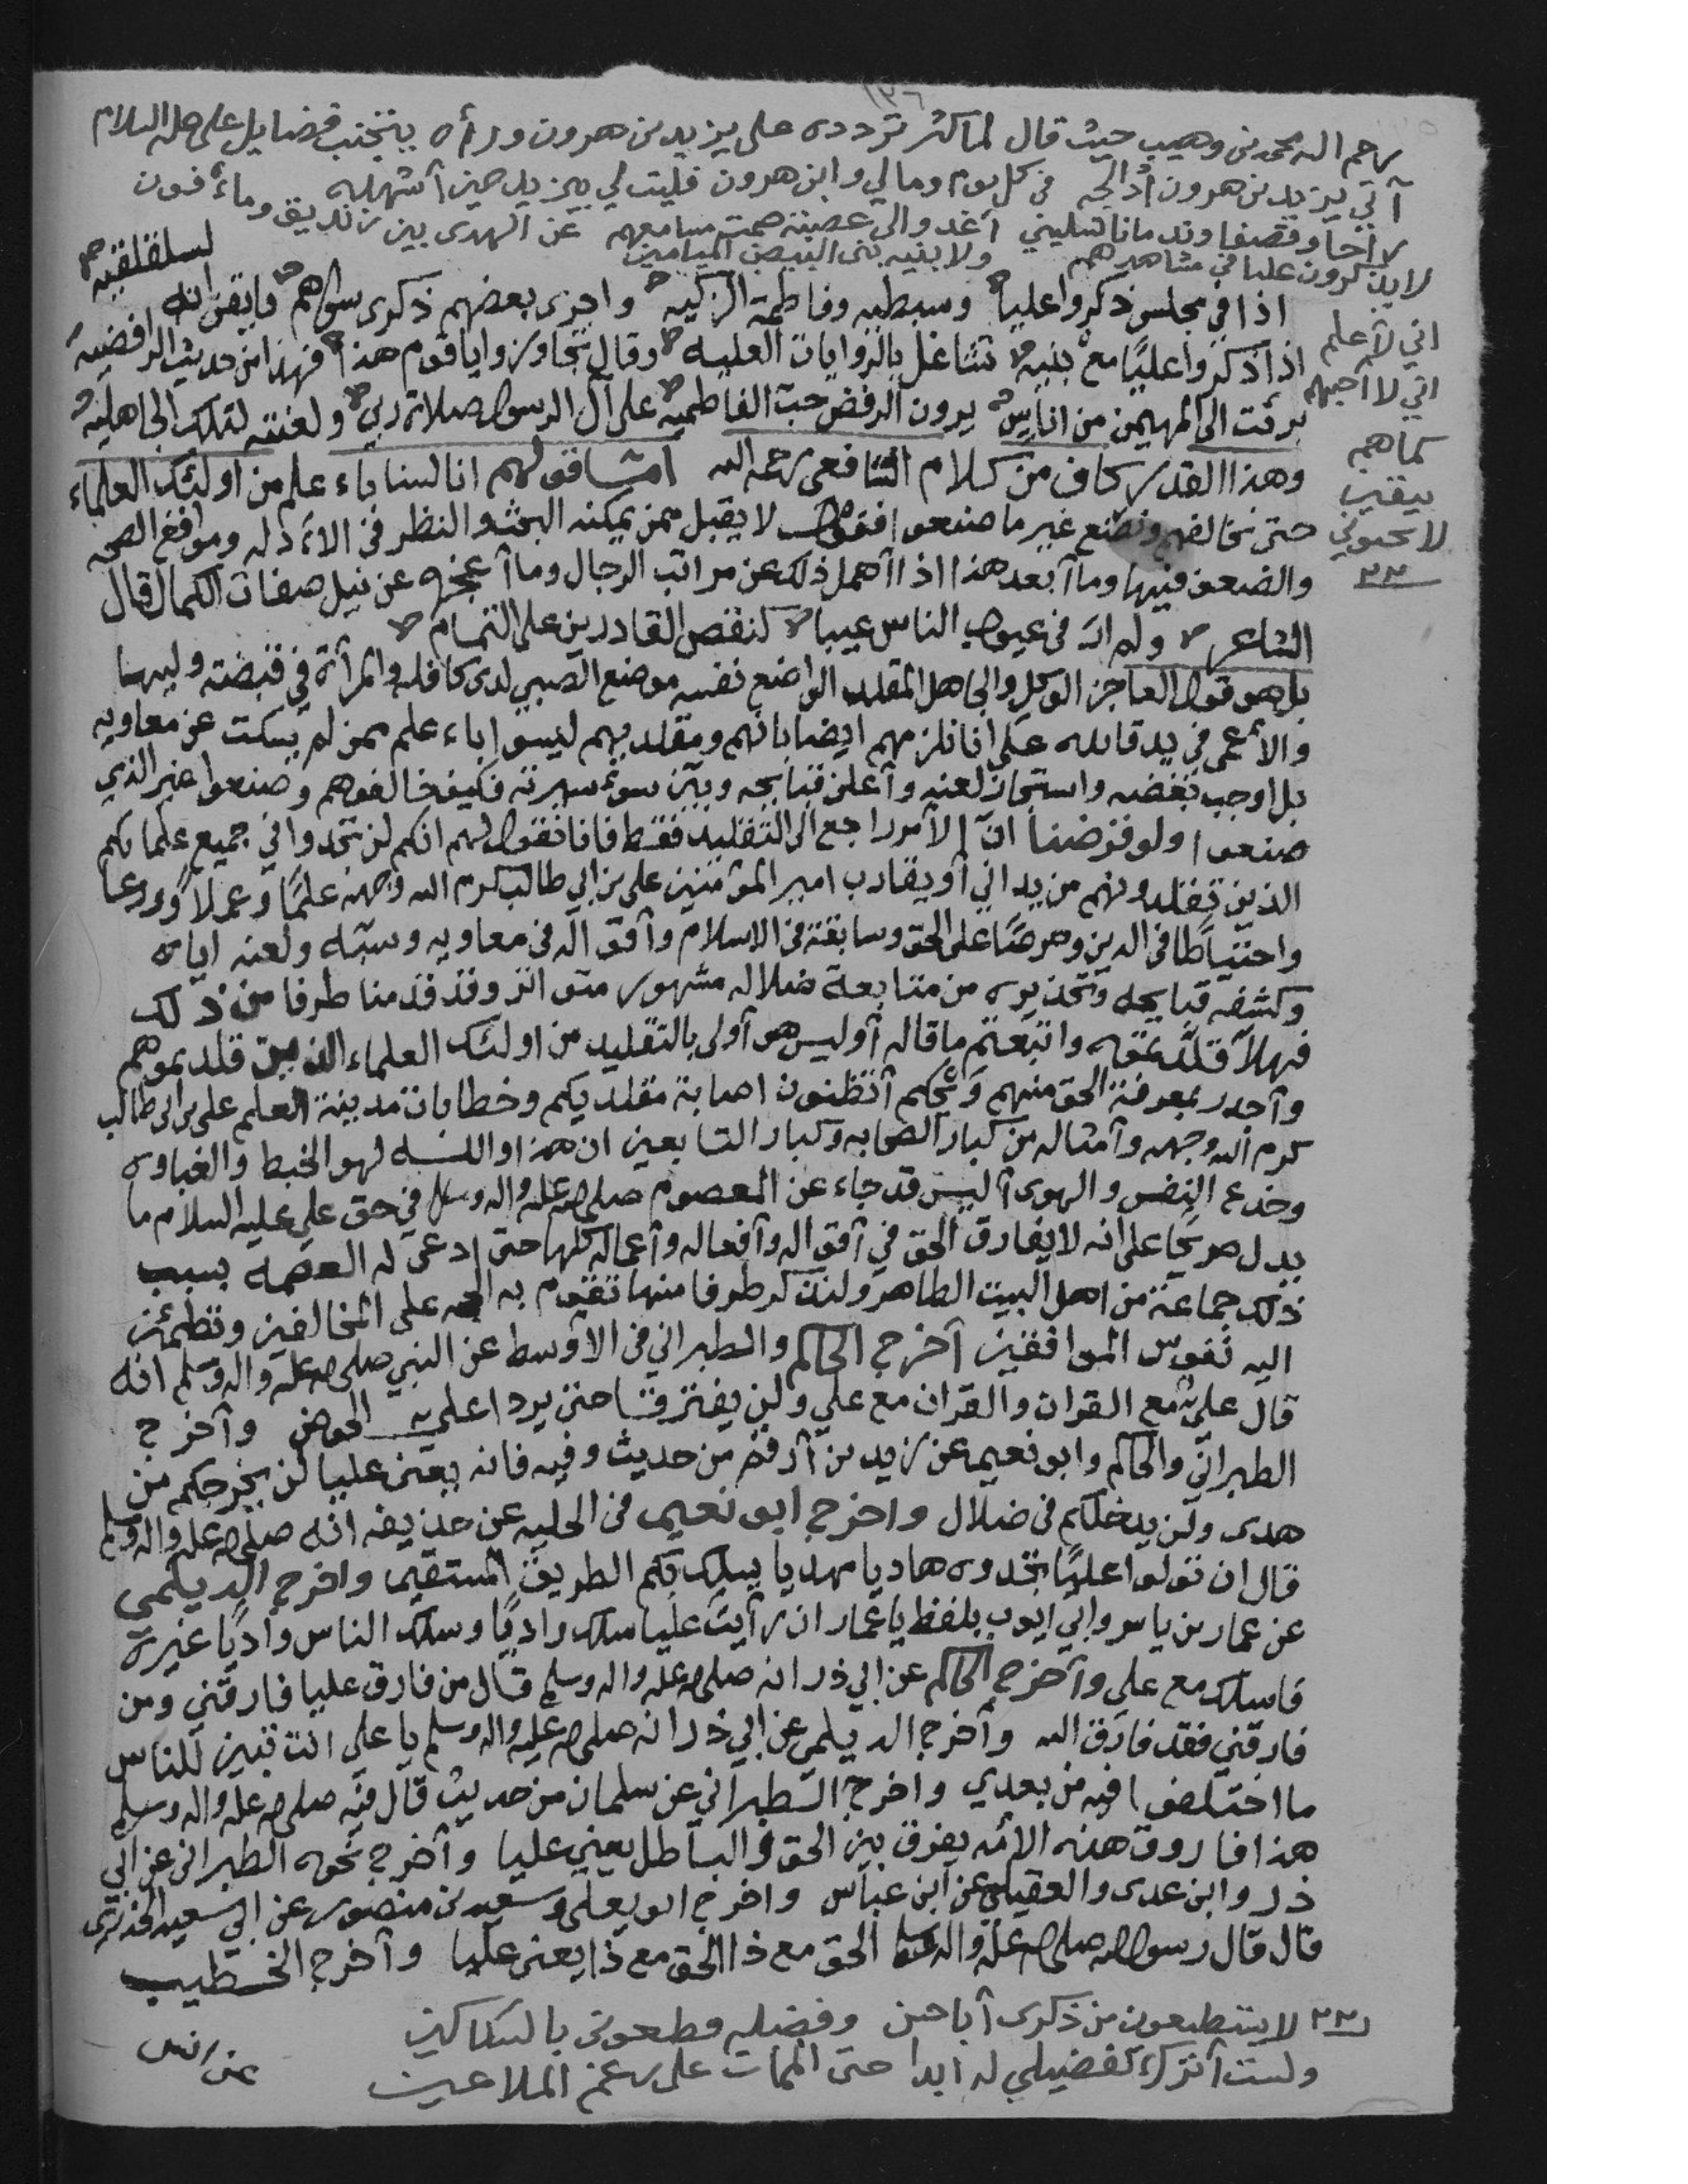 ١٣٦
رحم الله محمد بن وهيب حيث قال لما كثر تردده على يزيد بن هرون ورأه يتجنب فضايل علي عليه السلام
آتي يزيد بن هرون أدالجه في كل يوم ومالي وابن هرون فليت لي بيزيد حين أشهده
راحا وقصفا وندمانا تسليني أغدو الى عصبة صمت مسامعهم عن الهدى بين زنديق ومأفون
لا يذكرون عليا في مشاهدهم ولا بنيه بني البيض الميامين
اني لأعلم
اني لا أحبهم
كما هم
بيقين
لا يحبوني
اذا في مجلس ذكروا عليا وسبطيه وفاطمة الزكيه واجرى بعضهم ذكرى سواهم فايقن انه لسلقلقيه
اذا ذكروا عليًا مع بنيه تشاغل بالروايات العليه وقال تجاوزوا يا قوم هذا فهذا من حديث الرافضيه
برئت الى المهيمن من اناس يرون الرفض حب الفاطميه على آل الرسول صلاة ربي ولعنته لتلك الجاهليه
وهذا القدر كاف من كلام الشافعي رحمه الله اما قولهم انا لسنا باعلم من اولئك العلماء
حتى نخالفهم ونصنع غير ما صنعوا فقول لا يقبل ممن يمكنه البحث والنظر في الأدله ومواقع الصحه
والضعف فيها وما أبعد هذا اذا أهمل ذلك عن مراتب الرجال وما أعجزه عن نيل صفات الكمال قال
الشاعر ولم ار في عيوب الناس عيبا كنقص القادرين على التمام
بل هو قول العاجز الوكل والجاهل المقلد الواضع نفسه موضع الصبي لدى كافله والمرأة في قبضة وليها
والأعمى في يد قائده على انا نلزمهم ايضا بانهم ومقلديهم ليسوا باعلم ممن لم يسكت عن معاويه
بل اوجب بغضه واستجاز لعنه وأعلن قبايحه وبين سوء سيرته فكيف خالفوهم وصنعوا غير الذي
صنعوا ولو فرضنا ان الأمر راجع الى التقليد فقط فانا نقول لهم انكم لن تجدوا في جميع علمائكم
الذين تقلدونهم من يداني أو يقارب امير المؤمنين علي بن ابي طالب كرم الله وجهه علمًا وعملا وورعا
واحتياطا في الدين وحرصًا على الحق وسابقة في الاسلام وأقواله في معاويه وسبه ولعنه اياه
وكشفه قبايحه وتحذيره من متابعة ضلاله مشهور متواتر وقد قدمنا طرفا من ذلك
فهلا قلدتموه واتبعتم ما قاله أوليس هو أولى بالتقليد من اولئك العلماء الذين قلدتموهم
وأجدر بمعرفة الحق منهم ويحكم أتظنون اصابة مقلديكم وخطا باب مدينة العلم علي بن ابي طالب
كرم الله وجهه وأمثاله من كبار الصحابه وكبار التابعين ان هذا والله لهو الخبط والغباوه
وخدع النفس والهوى أليس قد جاء عن المعصوم صلى الله عليه واله وسلم في حق علي عليه السلام ما
يدل صريحًا على انه لا يفارق الحق في أقواله وأفعاله وأعماله كلها حتى ادعى له العصمه بسبب
ذلك جماعة من اهل البيت الطاهر ولنذكر طرفا منها تقوم به الحجه على المخالفين وتطمئن
اليه نفوس الموافقين أخرج الحاكم والطبراني في الأوسط عن النبي صلى الله عليه واله وسلم انه
قال علي مع القران والقران مع علي ولن يفترقا حتى يردا علي الحوض وأخرج
الطبراني والحاكم وابو نعيم عن زيد بن أرقم من حديث وفيه فانه يعني عليا لن يخرجكم من
هدى ولن يدخلكم في ضلال واخرج ابو نعيم في الحليه عن حذيفه انه صلى الله عليه واله وسلم
قال ان تولوا عليًا تجدوه هاديا مهديا يسلك بكم الطريق المستقيم واخرج الديلمي
عن عمار بن ياسر وابي ايوب بلفظ يا عمار ان رأيت عليا سلك واديًا وسلك الناس واديًا غيره
فاسلك مع علي وأخرج الحاكم عن ابي ذر انه صلى الله عليه واله وسلم قال من فارق عليا فارقني ومن
فارقني فقد فارق الله وأخرج الديلمي عن ابي ذر انه صلى الله عليه واله وسلم يا علي انت تبين للناس
ما اختلفوا فيه من بعدي واخرج الطبراني عن سلمان من حديث قال فيه صلى الله عليه واله وسلم
هذا فاروق هذه الأمه يفرق بين الحق والباطل يعني عليا وأخرج نحوه الطبراني عن ابي
ذر وابن عدى والعقيلي عن ابن عباس واخرج ابو يعلى وسعيد بن منصور عن ابي سعيد الخدري
قال قال رسول الله صلى الله عليه واله وسلم الحق مع ذا الحق مع ذا يعني عليا وأخرج الخطيب
لا يستطيعون من ذكرى أبا حسن وفضله قطعوني بالسكاكين
ولست أترك تفضيلي له ابدا حتى الممات على رغم الملاعين
عن انس